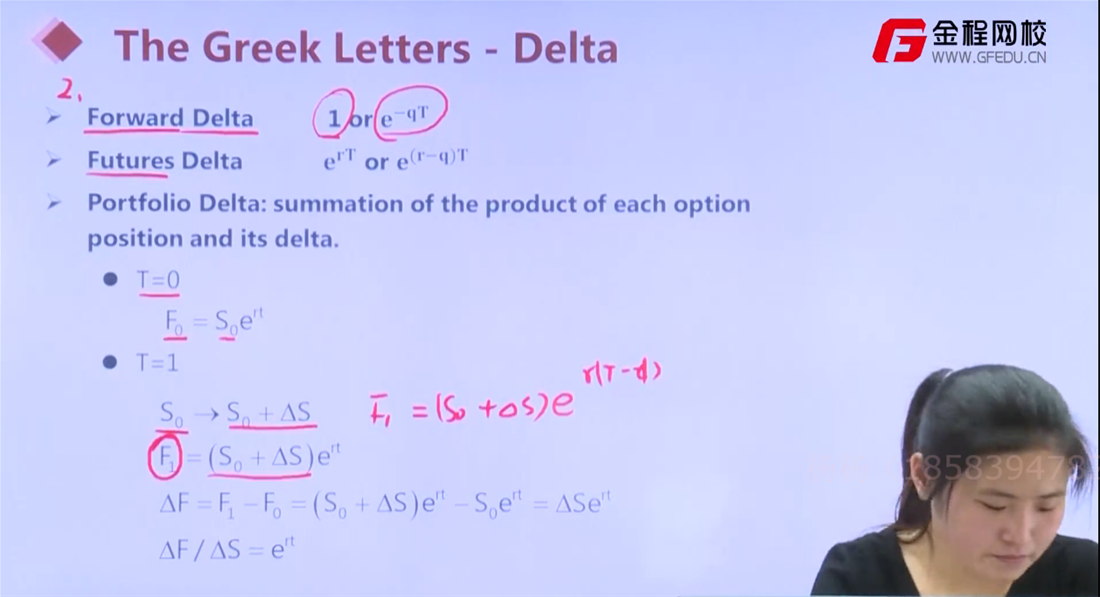 The Greek Letters - Delta
金程网校
WWW.GFEDU.CN
2.
➢ Forward Delta 1 or e^{-qT}
➢ Futures Delta e^{rT} or e^{(r-q)T}
➢ Portfolio Delta: summation of the product of each option
position and its delta.
● T=0
F₀ = S₀e^{rt}
● T=1
S₀ → S₀ + ΔS
F₁ = (S₀ + ΔS)e^{r(T-1)}
F₁ = (S₀ + ΔS)e^{rt}
ΔF = F₁ − F₀ = (S₀ + ΔS)e^{rt} − S₀e^{rt} = ΔSe^{rt}
ΔF / ΔS = e^{rt}